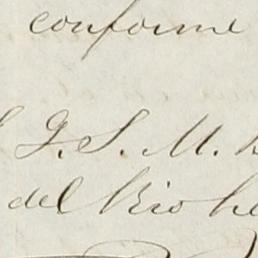 conforme
J. S. M.
del Rio